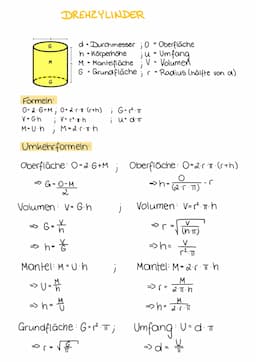 DREHZYLINDER
G
M
h
G
d = Durchmesser ; O = Oberfläche
h = Körperhöhe ; u = Umfang
M = Mantelfläche ; V = Volumen
G = Grundfläche ; r = Radius (hälfte von d)
Formeln:
O = 2·G+M ; O = 2·r·π·(r+h) ; G = r²·π
V = G·h ; V = r²·π·h ; u = d·π
M = U·h ; M = 2·r·π·h
Umkehrformeln:
Oberfläche: O = 2·G+M ; Oberfläche: O = 2·r·π·(r+h)
⇒ G = (O-M)/2 ⇒ h = O/(2·r·π) - r
Volumen: V = G·h ; Volumen: V = r²·π·h
⇒ G = V/h ⇒ r = √(V/(h·π))
⇒ h = V/G ⇒ h = V/(r²·π)
Mantel: M = U·h ; Mantel: M = 2·r·π·h
⇒ U = M/h ⇒ r = M/(2·π·h)
⇒ h = M/U ⇒ h = M/(2·r·π)
Grundfläche: G = r²·π ; Umfang: U = d·π
⇒ r = √(G/π) ⇒ d = U/π